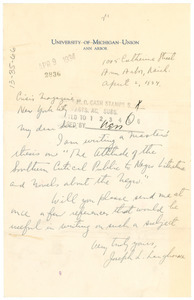 UNIVERSITY OF MICHIGAN UNION
ANN ARBOR
1105 Catherine Street
Ann Arbor, Mich.
April 6, 1934
APR 9 1934
2836
Crisis Magazine
New York City
My dear Sirs:
I am writing a master's
thesis on "The Attitude of the
Southern Critical Public to Negro Literature
and Novels about the Negro".
Will you please send me at
once a few references that would be
useful in writing on such a subject.
Very truly yours,
Joseph L. Langhorne